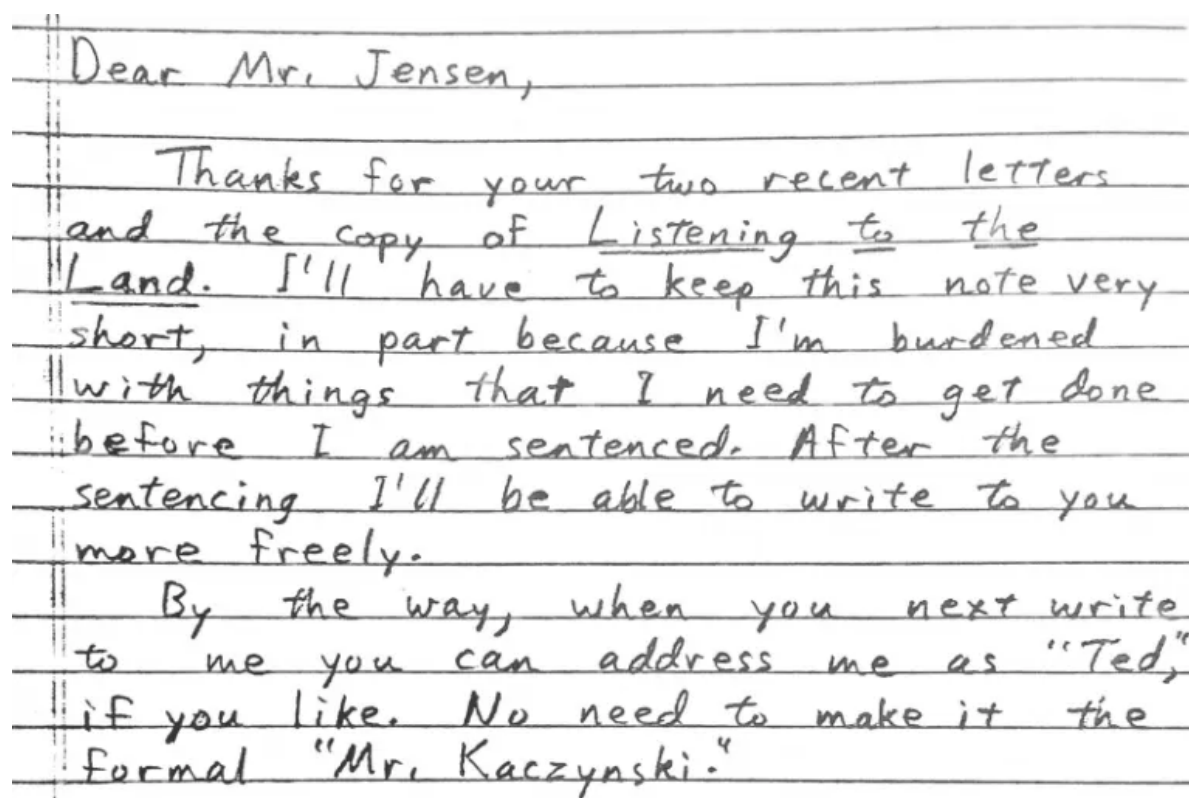 Dear Mr. Jensen,
Thanks for your two recent letters
and the copy of Listening to the
Land. I'll have to keep this note very
short, in part because I'm burdened
with things that I need to get done
before I am sentenced. After the
sentencing I'll be able to write to you
more freely.
By the way, when you next write
to me you can address me as "Ted,"
if you like. No need to make it the
formal "Mr. Kaczynski."